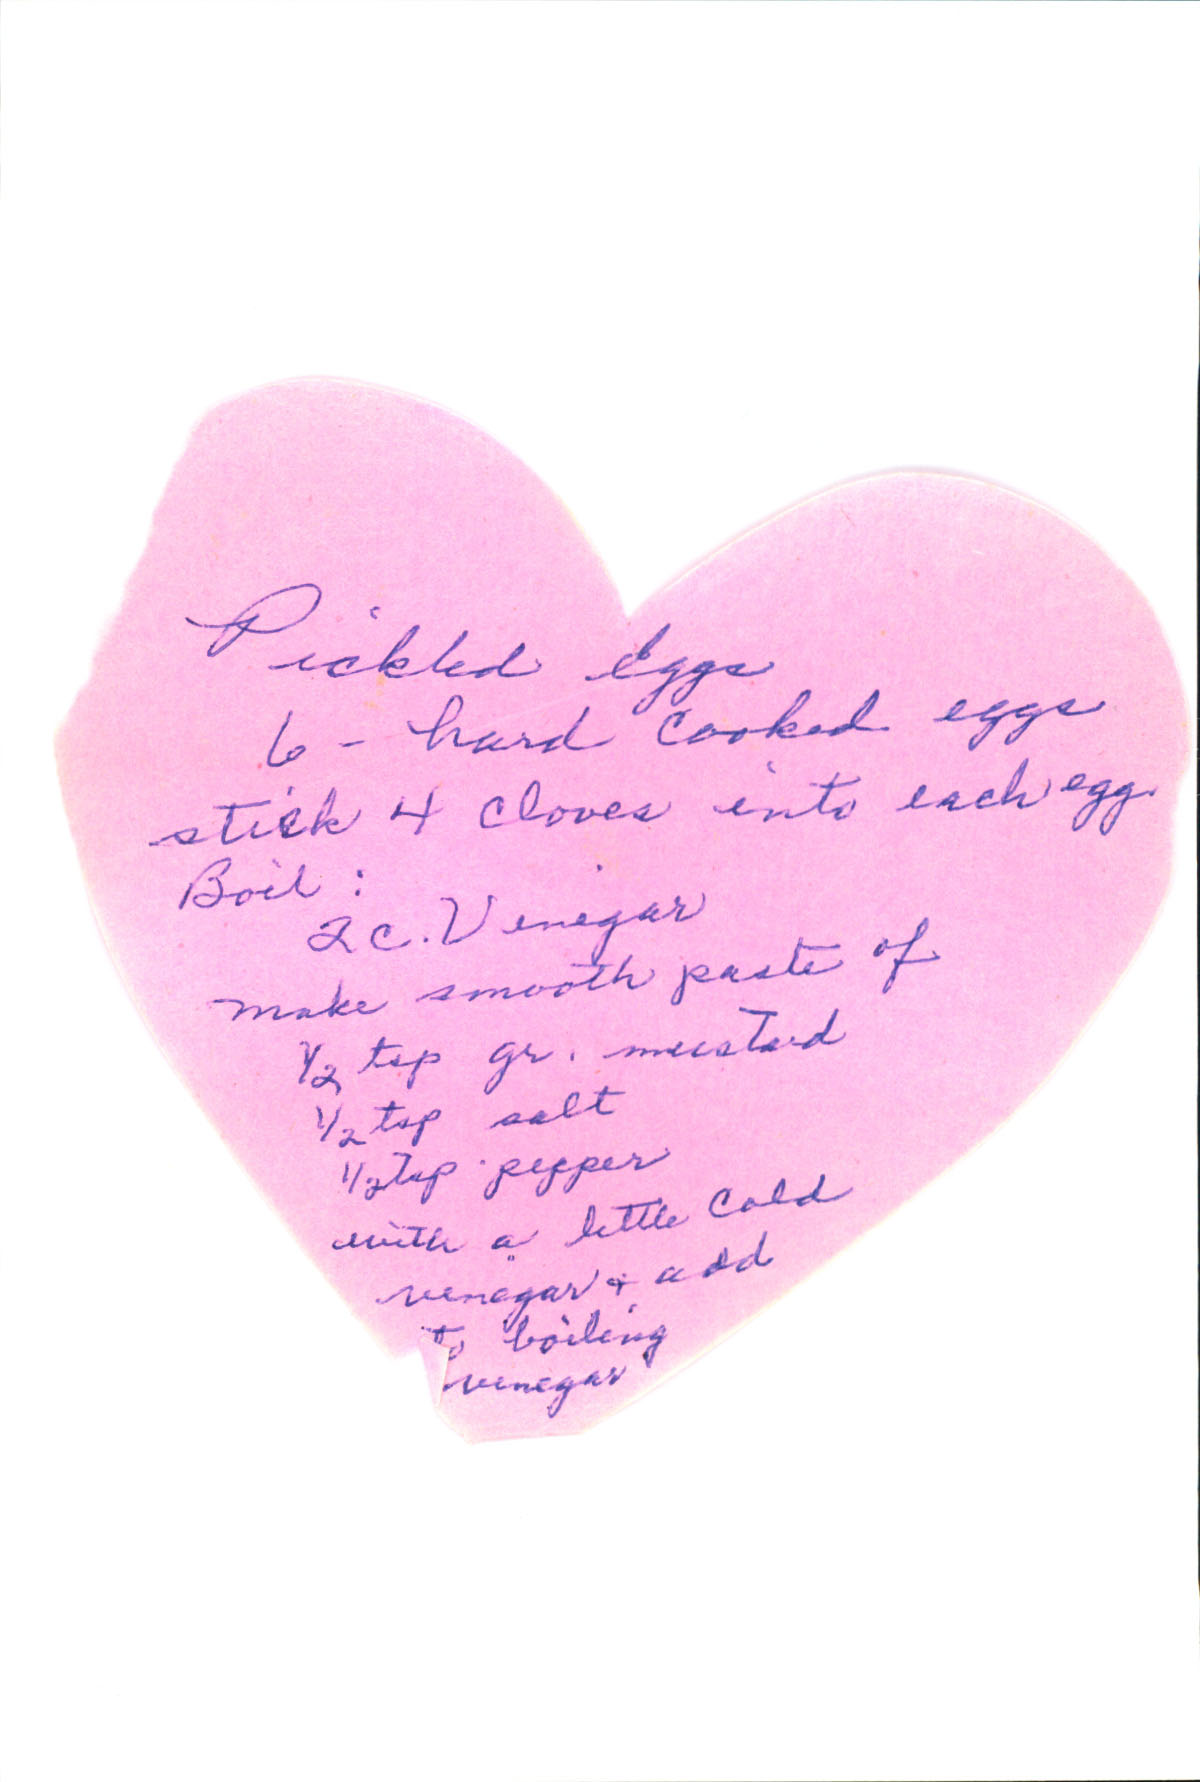 Pickled Eggs
6 - hard cooked eggs
stick 4 cloves into each egg.
Boil:
2 c. Vinegar
make smooth paste of
1/2 tsp gr. mustard
1/2 tsp salt
1/2 tsp pepper
with a little cold
vinegar & add
to boiling
vinegar